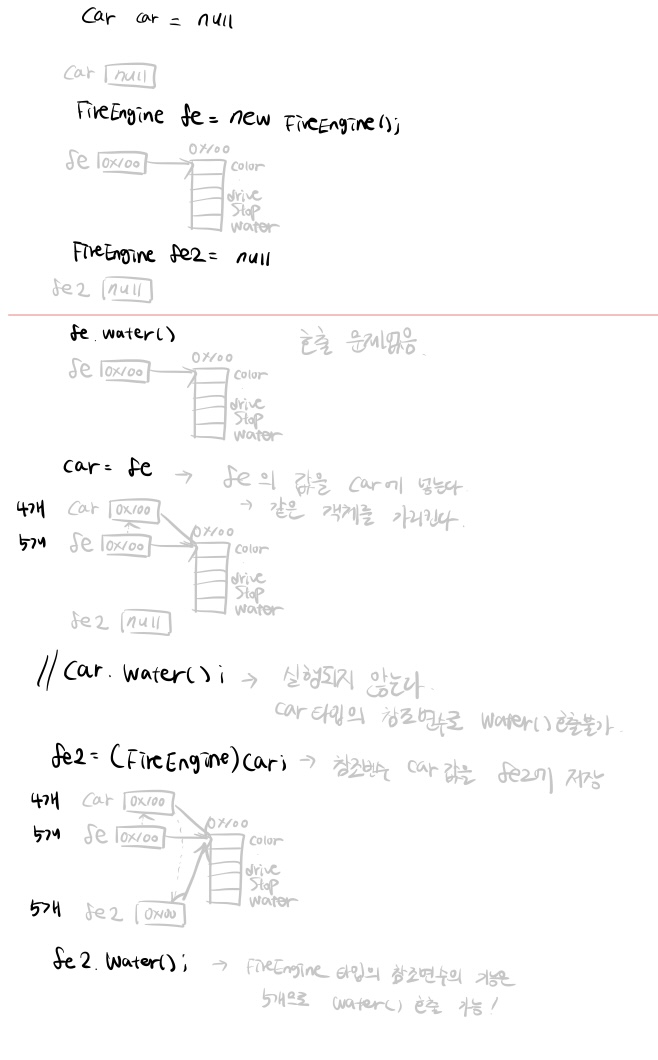 Car car = null
car null
FireEngine fe = new FireEngine();
0x100
fe 0x100 color
drive
stop
water
FireEngine fe2 = null
fe2 null
fe.water() 호출 문제없음.
0x100
fe 0x100 color
drive
stop
water
car = fe → fe의 값을 car에 넣는다
→ 같은 객체를 가리킨다.
4개 car 0x100
0x100
5개 fe 0x100 color
drive
stop
water
fe2 null
// car.water(); → 실행되지 않는다.
car타입의 참조변수로 water()호출불가.
fe2 = (FireEngine)car; → 참조변수 car값을 fe2에 저장
4개 car 0x100
0x100
5개 fe 0x100 color
drive
stop
water
5개 fe2 0x100
fe2.water(); → FireEngine 타입의 참조변수의 기능은
5개으로 water() 호출 가능!